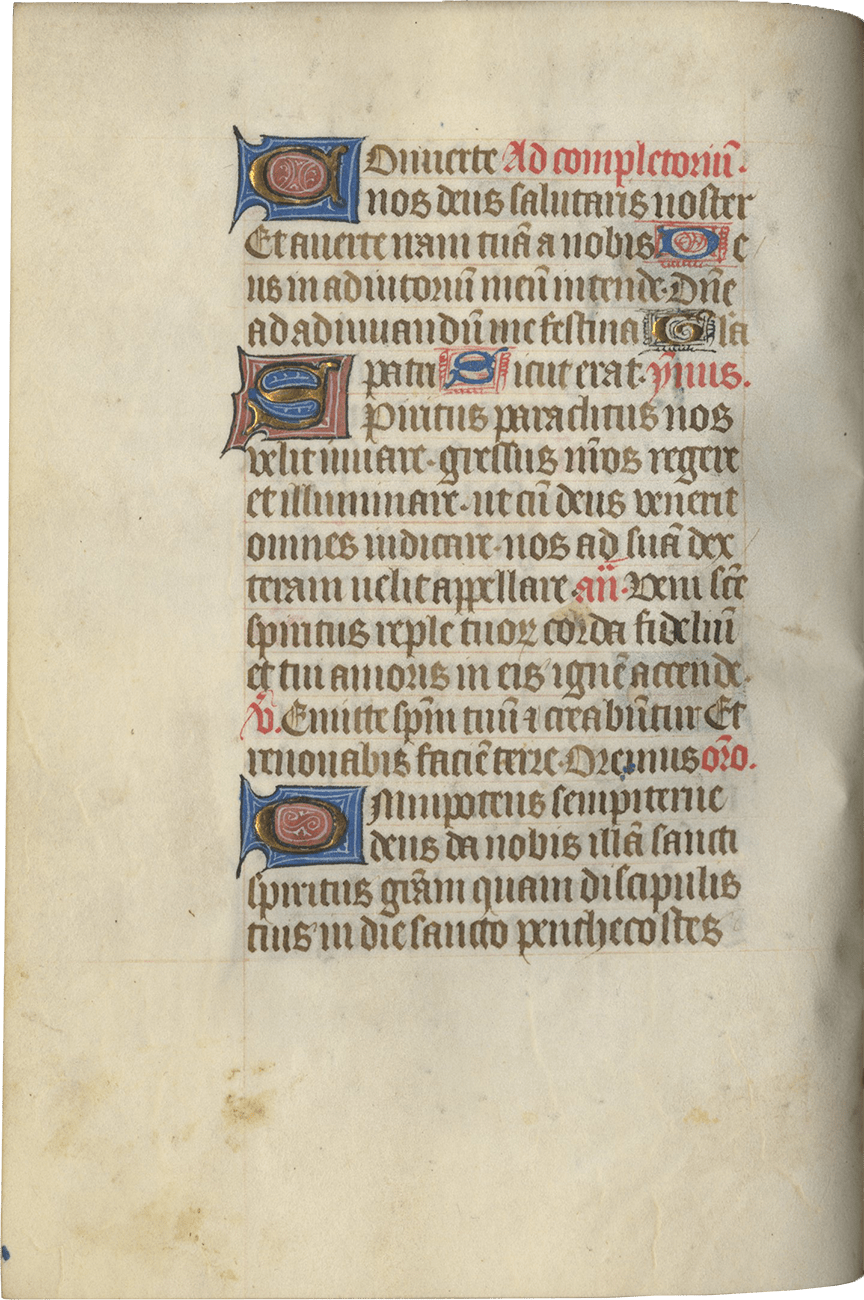 Conuerte Ad completoriū.
nos deus salutaris noster
Et auerte iram tuā a nobis De
us in adiutoriū meū intende. Dn̄e
ad adiuuandū me festina Gl̄a
patri Sicut erat. ym̄nus.
Spiritus paraclitus nos
velit iuuare. gressus n̄ros regere
et illuminare. ut cū deus venerit
omnes iudicare. nos ad suā dex
teram uelit appellare. an̄. Veni sc̄e
spiritus reple tuoꝝ corda fideliū
et tui amoris in eis ignē accende.
v̄. Emitte sp̄m tuū ⁊ creabūtur Et
renouabis faciē terre. Oremus or̄o.
Omnipotens sempiterne
deus da nobis illā sancti
spiritus gr̄am quam discipulis
tuis in die sancto penthecostes